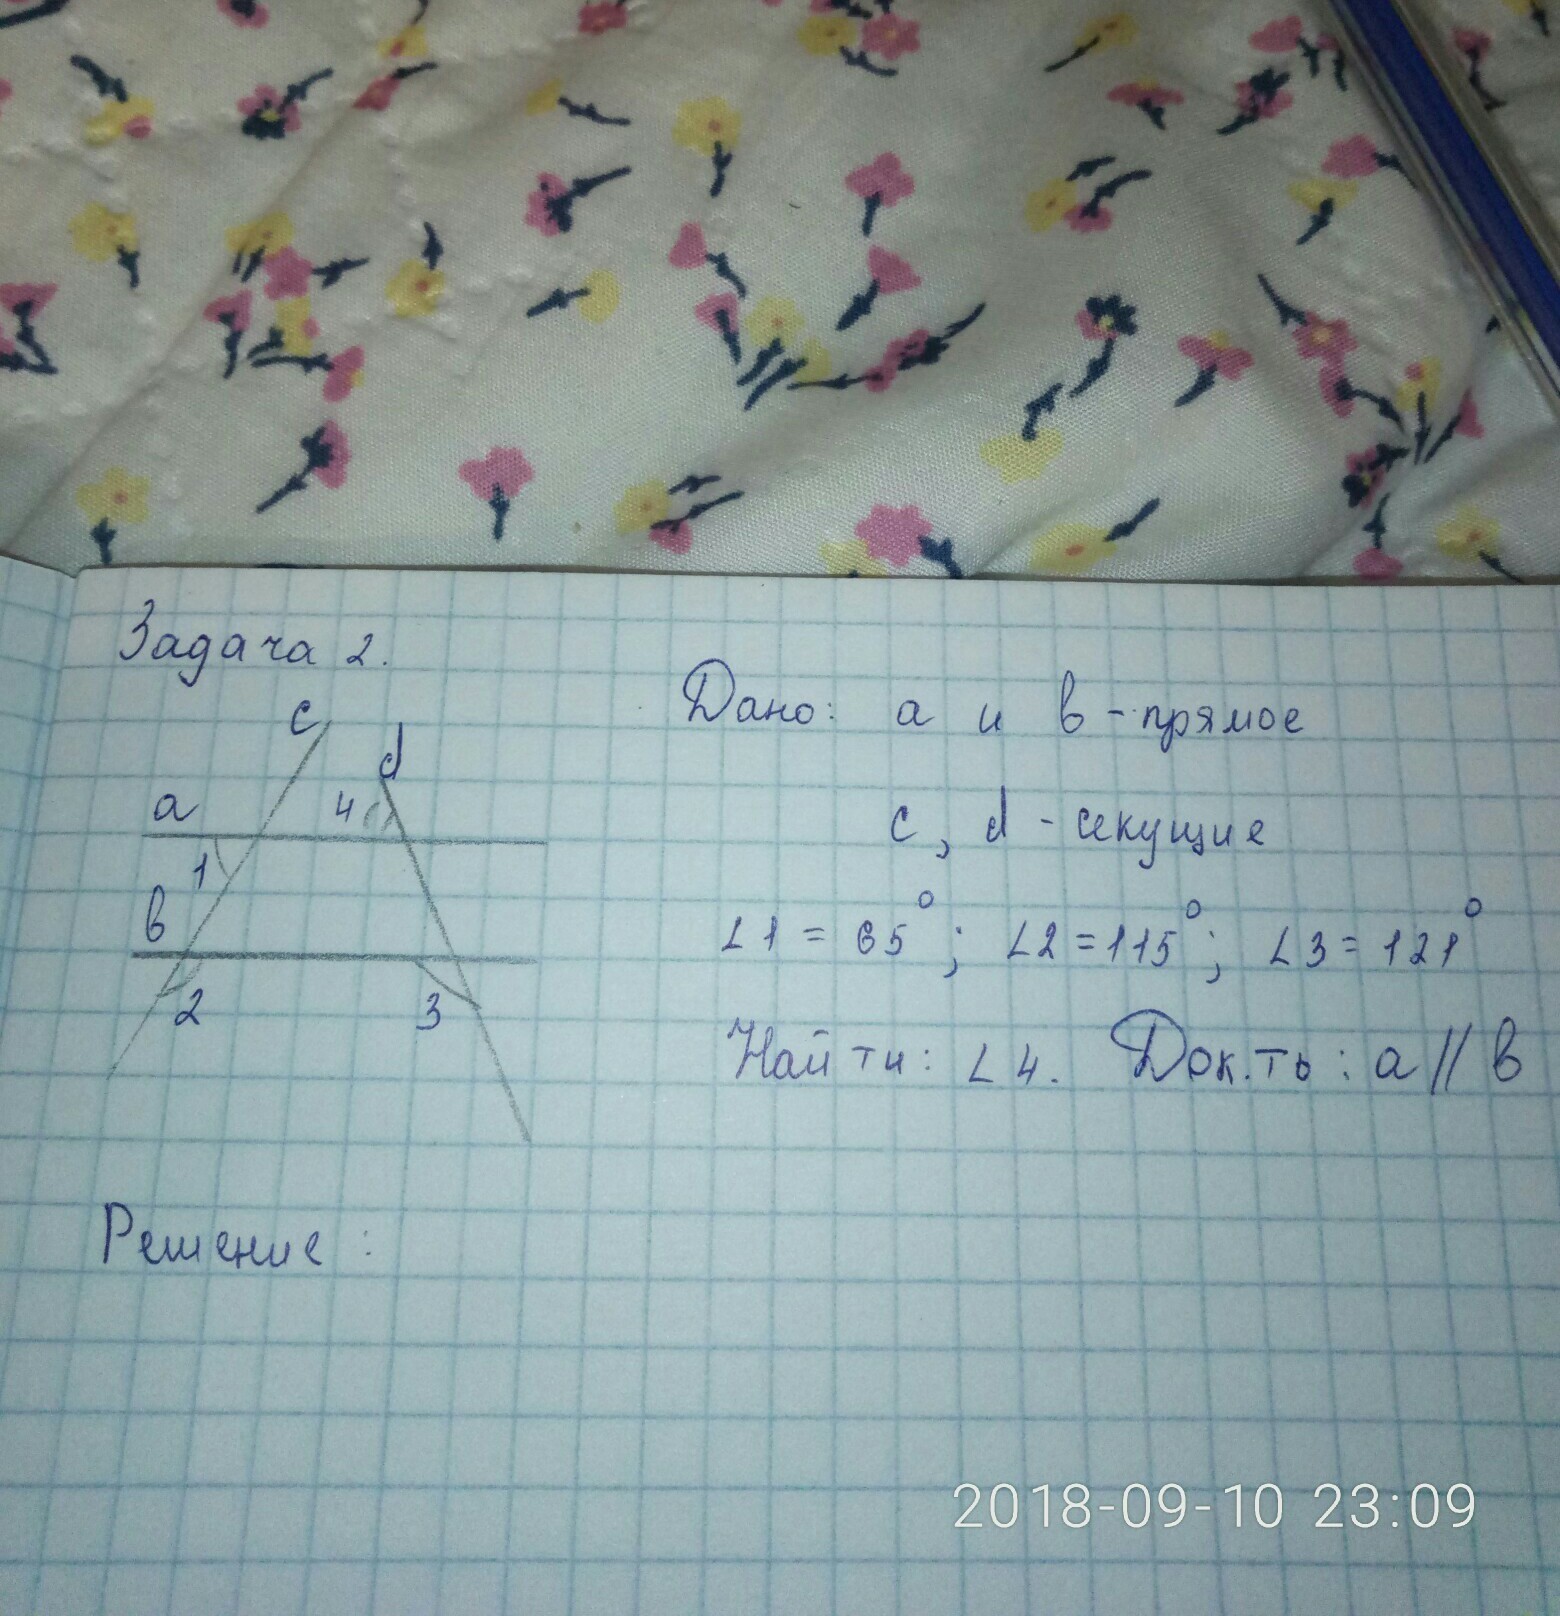 Задача 2.
c
d
a
4
1
в
2
3
Дано: a и в - прямое
c, d - секущие
∠1 = 65°; ∠2 = 115°; ∠3 = 121°
Найти: ∠4. Док.ть: a // в
Решение:
2018-09-10 23:09